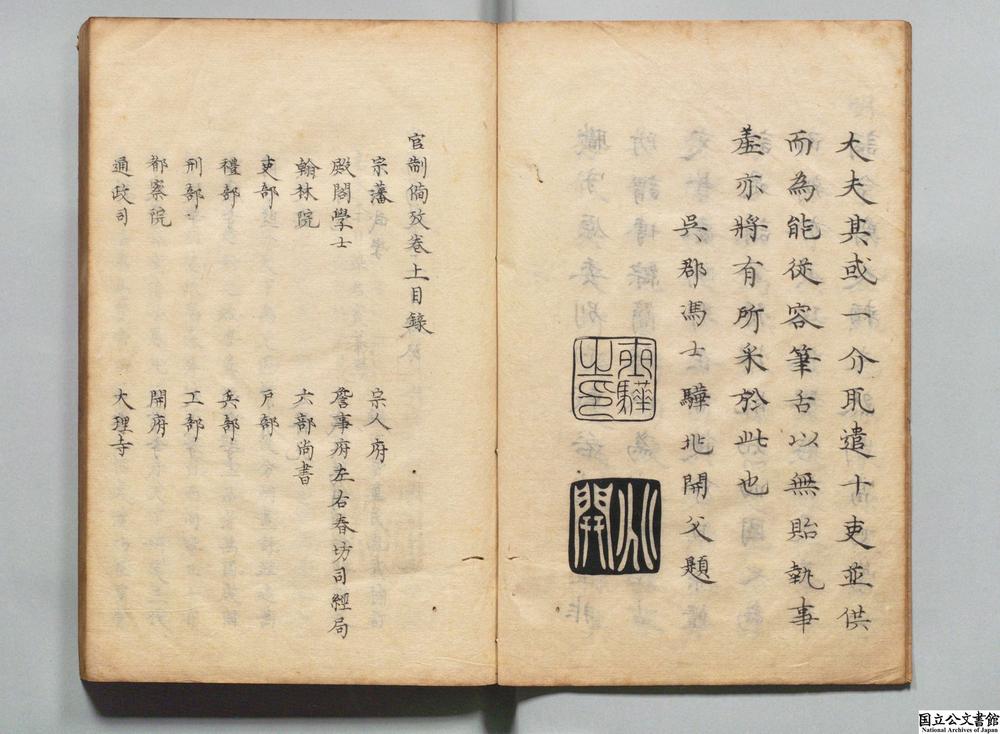 大夫其或一介取遣十吏並供
而為能從容筆舌以無貽執事
羞亦將有所采於此也
吳郡馮士驊北開父題
士驊之印
北開
官制備攷卷上目錄
宗藩 宗人府
殿閣學士 詹事府左右春坊司經局
翰林院 六部尚書
吏部 戶部
禮部 兵部
刑部 工部
都察院 開府
通政司 大理寺
国立公文書館
National Archives of Japan